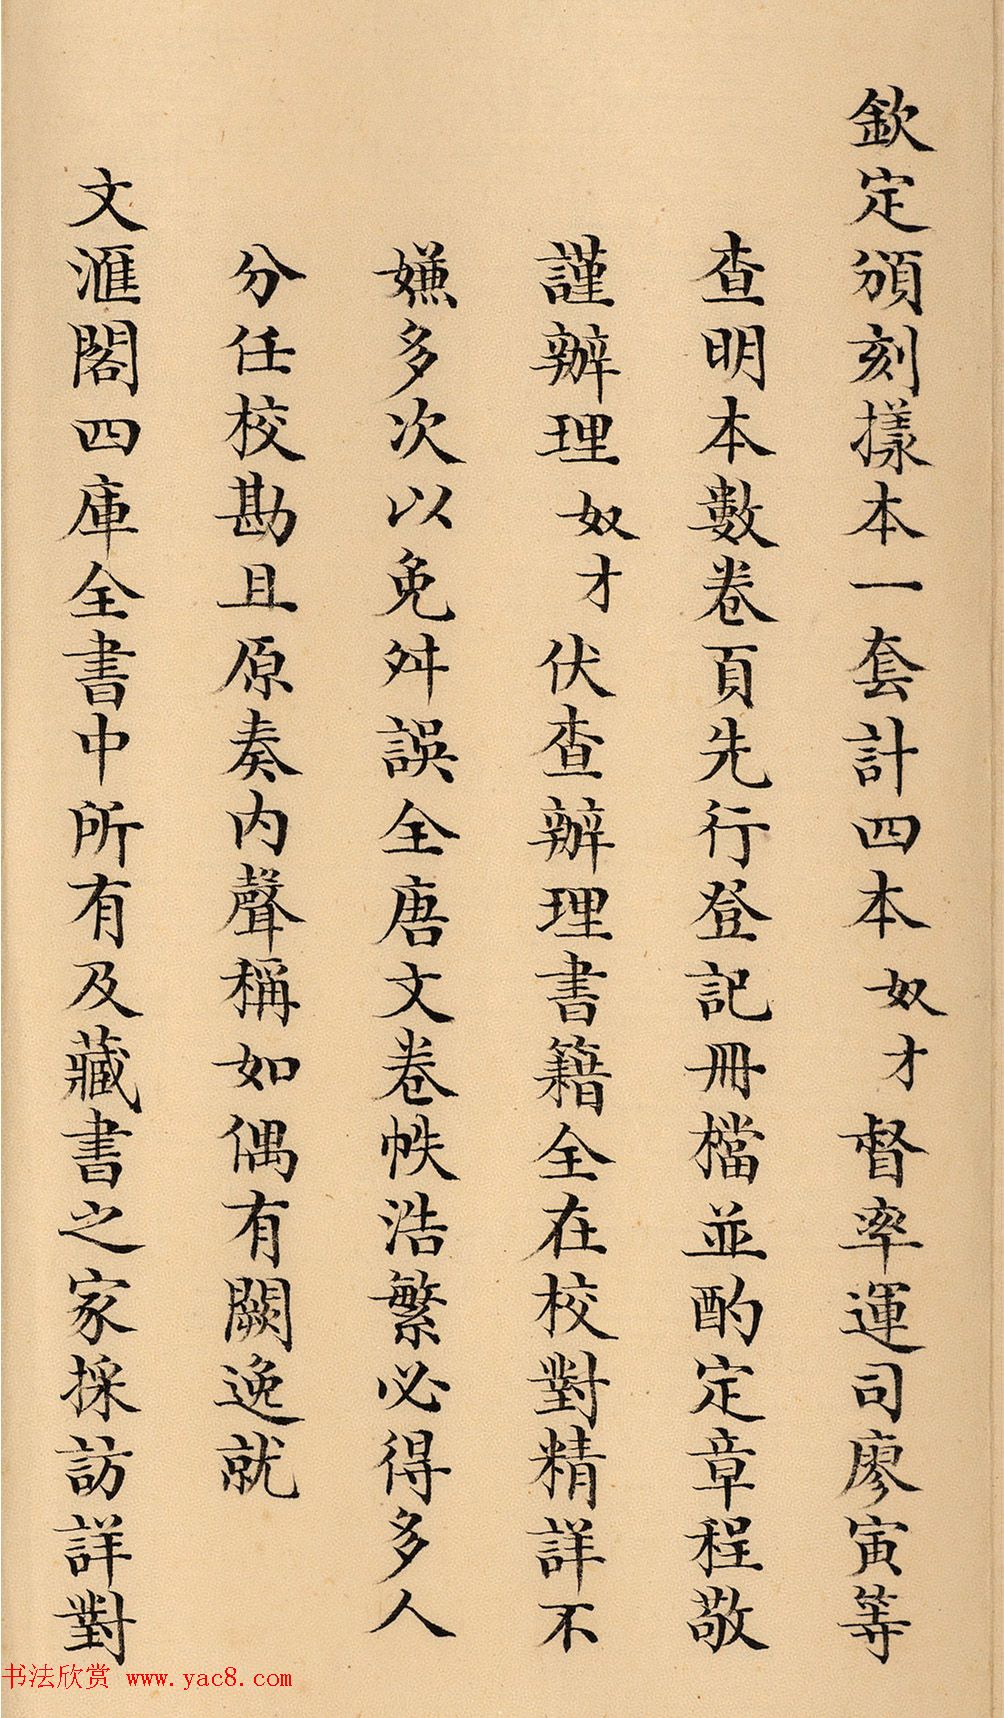 欽定頒刻樣本一套計四本奴才督率運司廖寅等
查明本數卷頁先行登記冊檔並酌定章程敬
謹辦理奴才伏查辦理書籍全在校對精詳不
嫌多次以免舛誤全唐文卷帙浩繁必得多人
分任校勘且原奏內聲稱如偶有闕逸就
文滙閣四庫全書中所有及藏書之家採訪詳對
书法欣赏 www.yac8.com